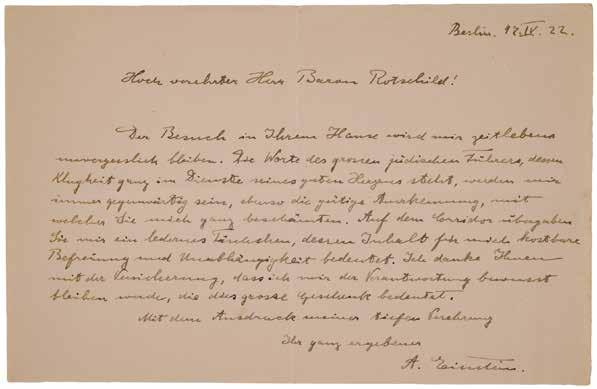 Berlin. 12.IX.22.
Hoch verehrter Herr Baron Rotschild!
Der Besuch in Ihrem Hause wird mir zeitlebens
unvergesslich bleiben. Die Worte des grossen jüdischen Führers, dessen
Klugheit ganz im Dienste seines guten Herzens steht, werden mir
immer gegenwärtig sein, ebenso die gütige Anerkennung, mit
welcher Sie mich ganz beschämten. Auf dem Corridor übergaben
Sie mir ein ledernes Täschchen, dessen Inhalt für mich kostbare
Befreiung und Unabhängigkeit bedeutet. Ich danke Ihnen
mit der Versicherung, dass ich mir der Verantwortung bewusst
bleiben werde, die dies grosse Geschenk bedeutet.
Mit dem Ausdruck meiner tiefen Verehrung
Ihr ganz ergebener
A. Einstein.